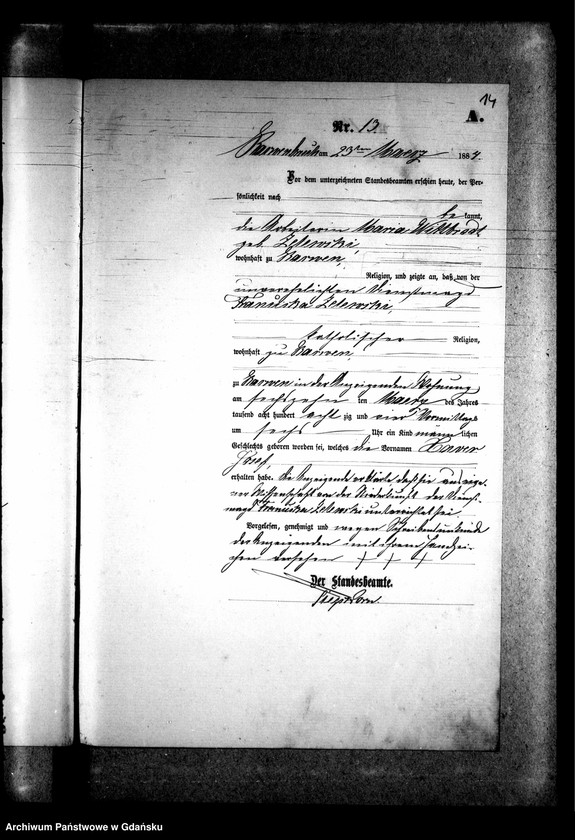 14
A.
Nr. 13.
Karwenbruch am 23ten Maerz 1884.
Vor dem unterzeichneten Standesbeamten erschien heute, der Per-
sönlichkeit nach
be kannt,
die Arbeiterin Maria
geb. Zelewski,
wohnhaft zu Karwen,
Religion, und zeigte an, daß von der
unverehelichten Dienstmagd
Franciska Zelewski,
katholischer Religion,
wohnhaft zu Karwen,
zu Karwen in der Anzeigenden Wohnung
am sechszehn ten Maerz des Jahres
tausend acht hundert acht zig und vier Vormittags
um sechs Uhr ein Kind männ lichen
Geschlechts geboren worden sei, welches die Vornamen Xaver
Josef,
erhalten habe. Die Anzeigende erklärte, daß sie aus eige-
ner Wissenschaft von der Niederkunft der Dienst-
magd Franciska Zelewski unterrichtet sei
Vorgelesen, genehmigt und wegen Schreibensunkunde
der Anzeigenden mit ihrem Handzei-
chen versehen + + +
Der Standesbeamte.
Archiwum Państwowe w Gdańsku